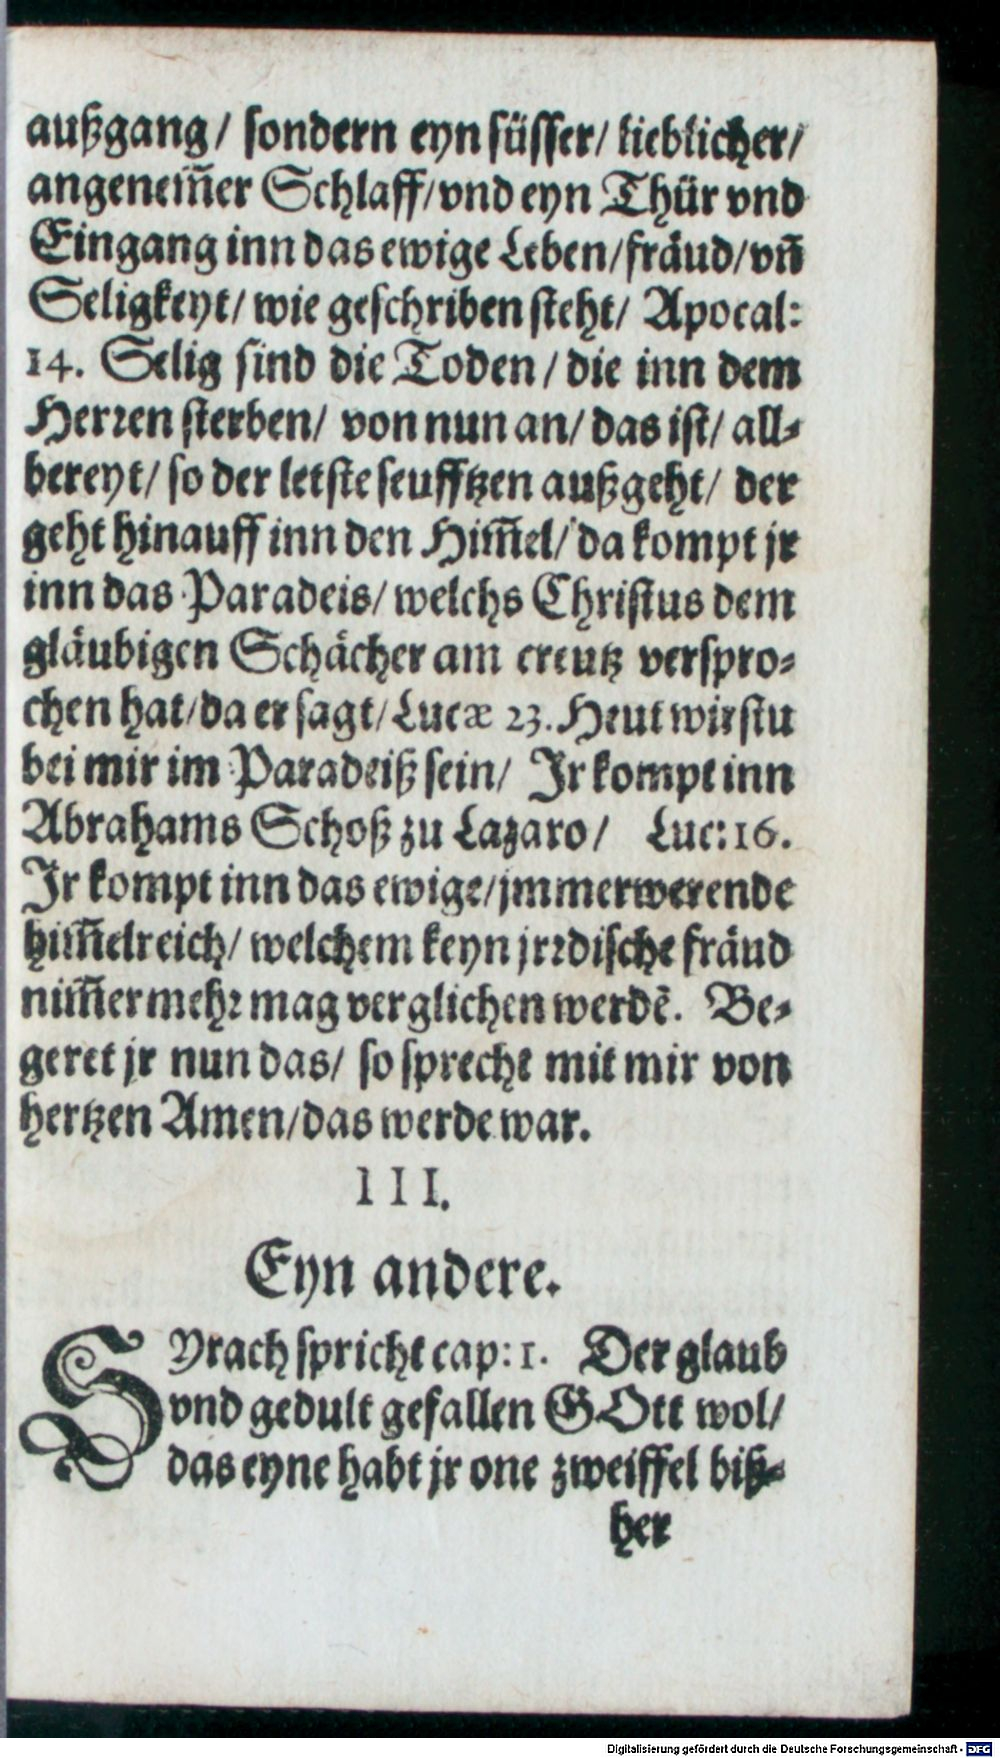 außgang/ sondern eyn süsser/ lieblicher/
angenem̃er Schlaff/vnd eyn Thür vnd
Eingang inn das ewige Leben/fräud/vñ
Seligkeyt/ wie geschriben steht/ Apocal:
14. Selig sind die Toden/ die inn dem
Herren sterben/ von nun an/ das ist/ all-
bereyt/ so der letste seufftzen außgeht/ der
geht hinauff inn den Him̃el/ da kompt jr
inn das Paradeis/ welchs Christus dem
gläubigen Schächer am creutz verspro-
chen hat/da er sagt/Lucæ 23. Heut wirstu
bei mir im Paradeiß sein/ Jr kompt inn
Abrahams Schoß zu Lazaro/ Luc:16.
Jr kompt inn das ewige/jmmerwerende
him̃elreich/ welchem keyn jrrdische fräud
nim̃ermehr mag verglichen werdē. Be-
geret jr nun das/ so sprecht mit mir von
hertzen Amen/das werde war.
III.
Eyn andere.
SYrach spricht cap:1. Der glaub
vnd gedult gefallen GOtt wol/
das eyne habt jr one zweiffel biß-
her
Digitalisierung gefördert durch die Deutsche Forschungsgemeinschaft - DFG